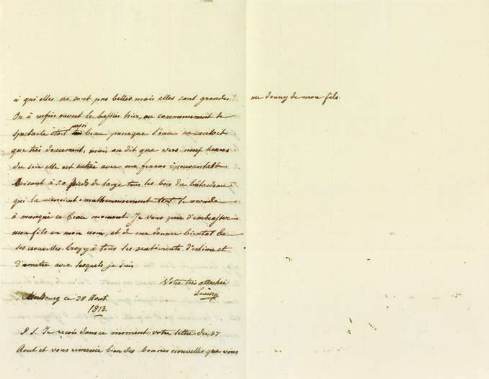 à qui elles ne sont pas belles mais elles sont grandes.
On a ouvert le bassin hier, au commencement le
spectacle étoit beau parceque l'eau ne couloit
que très doucement, mais on dit que vers neuf heures
du soir elle est entrée avec une fracas épouvantable
brisant à 20 pieds de large tous les bois du batardeau
qui la
à manqué ce beau moment. Je vous prie d'embrasser
mon fils en mon nom, et de me donner bientot de
ses nouvelles. Croyez à tous les sentiments d'estime et
d'amitié avec lesquels je suis
Votre très attachée
Louise
ce 28 Aout
1813.
P.S. Je reçois dans ce moment votre lettre du 27
Aout et vous remercie bien des bonnes nouvelles que vous
me donnez de mon fils.